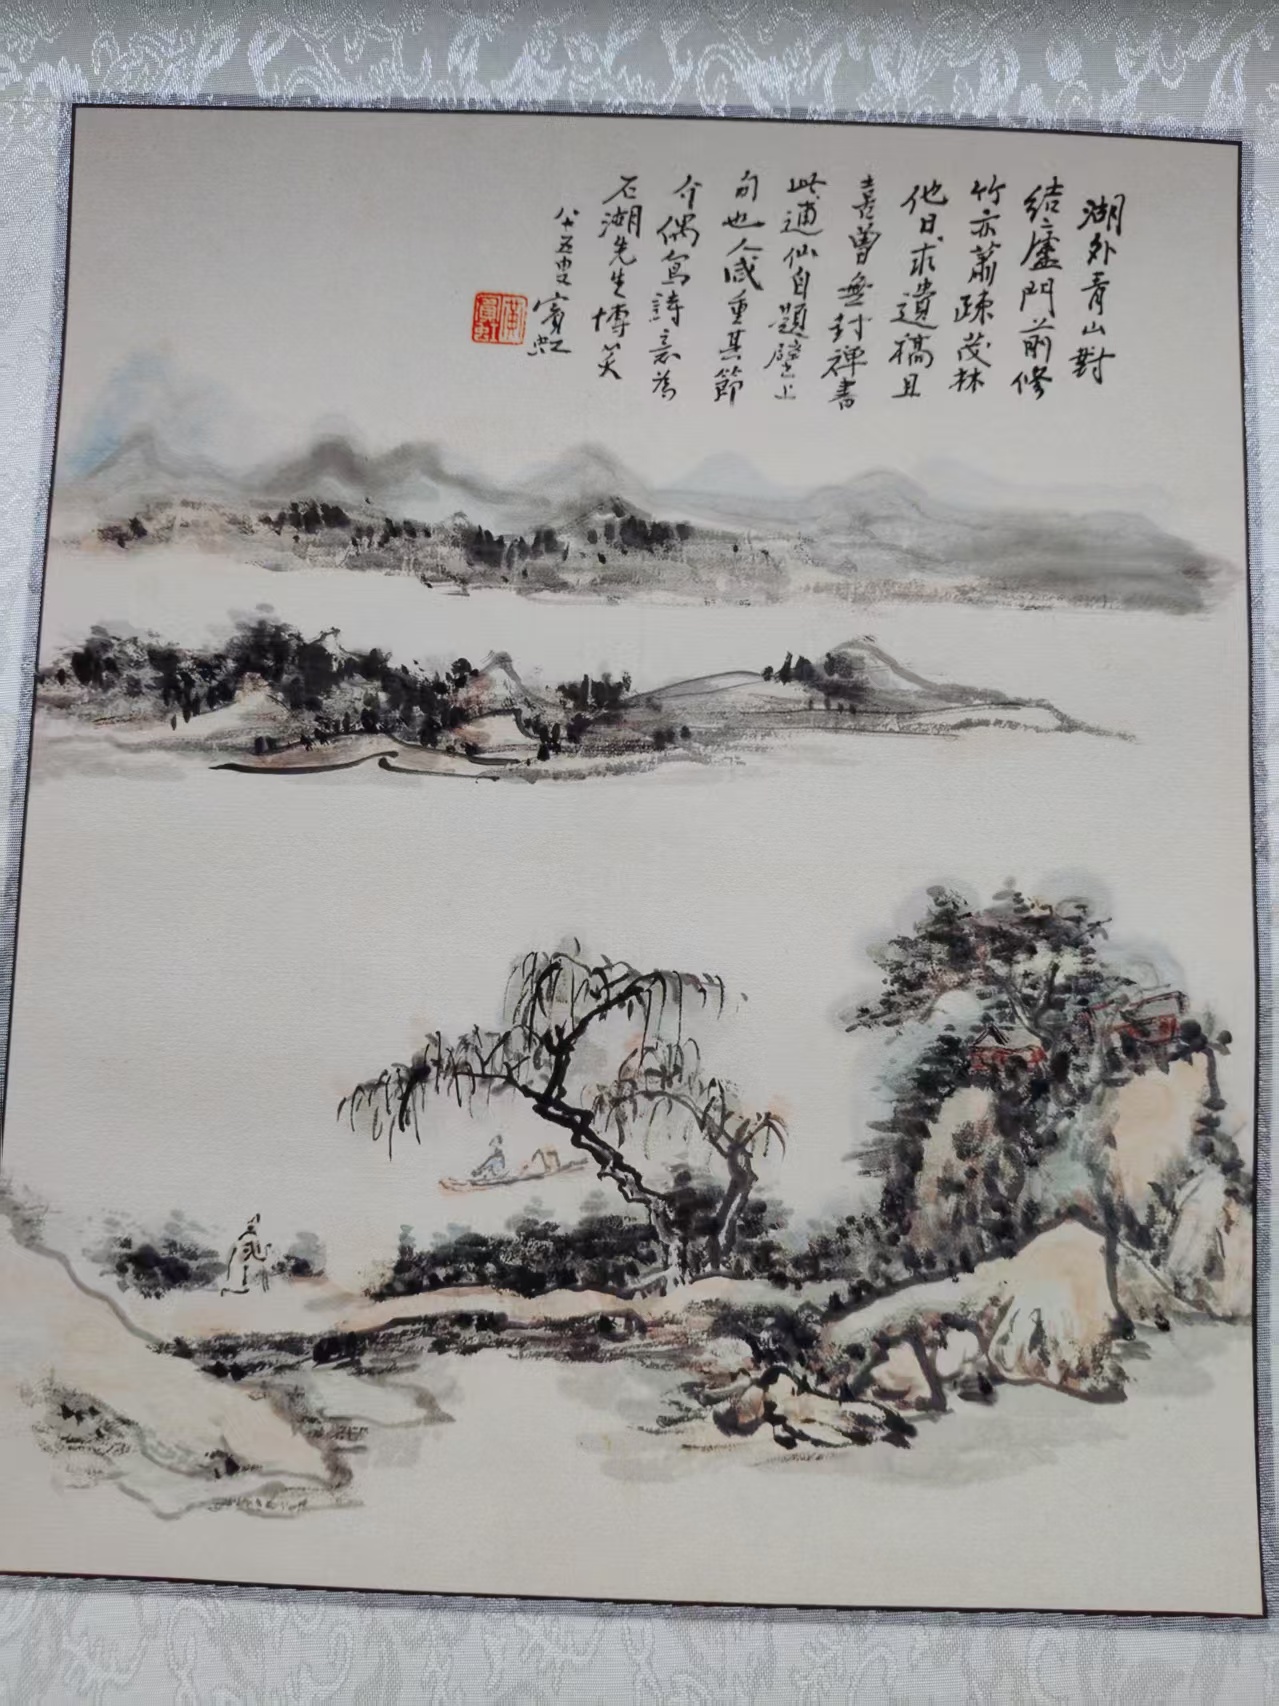 湖外青山對
結廬門前修
竹亦蕭疎茂林
他日求遺稿且
喜曾無封禪書
此逋仙自題壁上
句也人咸重其節
介偶寫詩意為
石湖先生博笑
八十五叟賓虹
黃賓虹